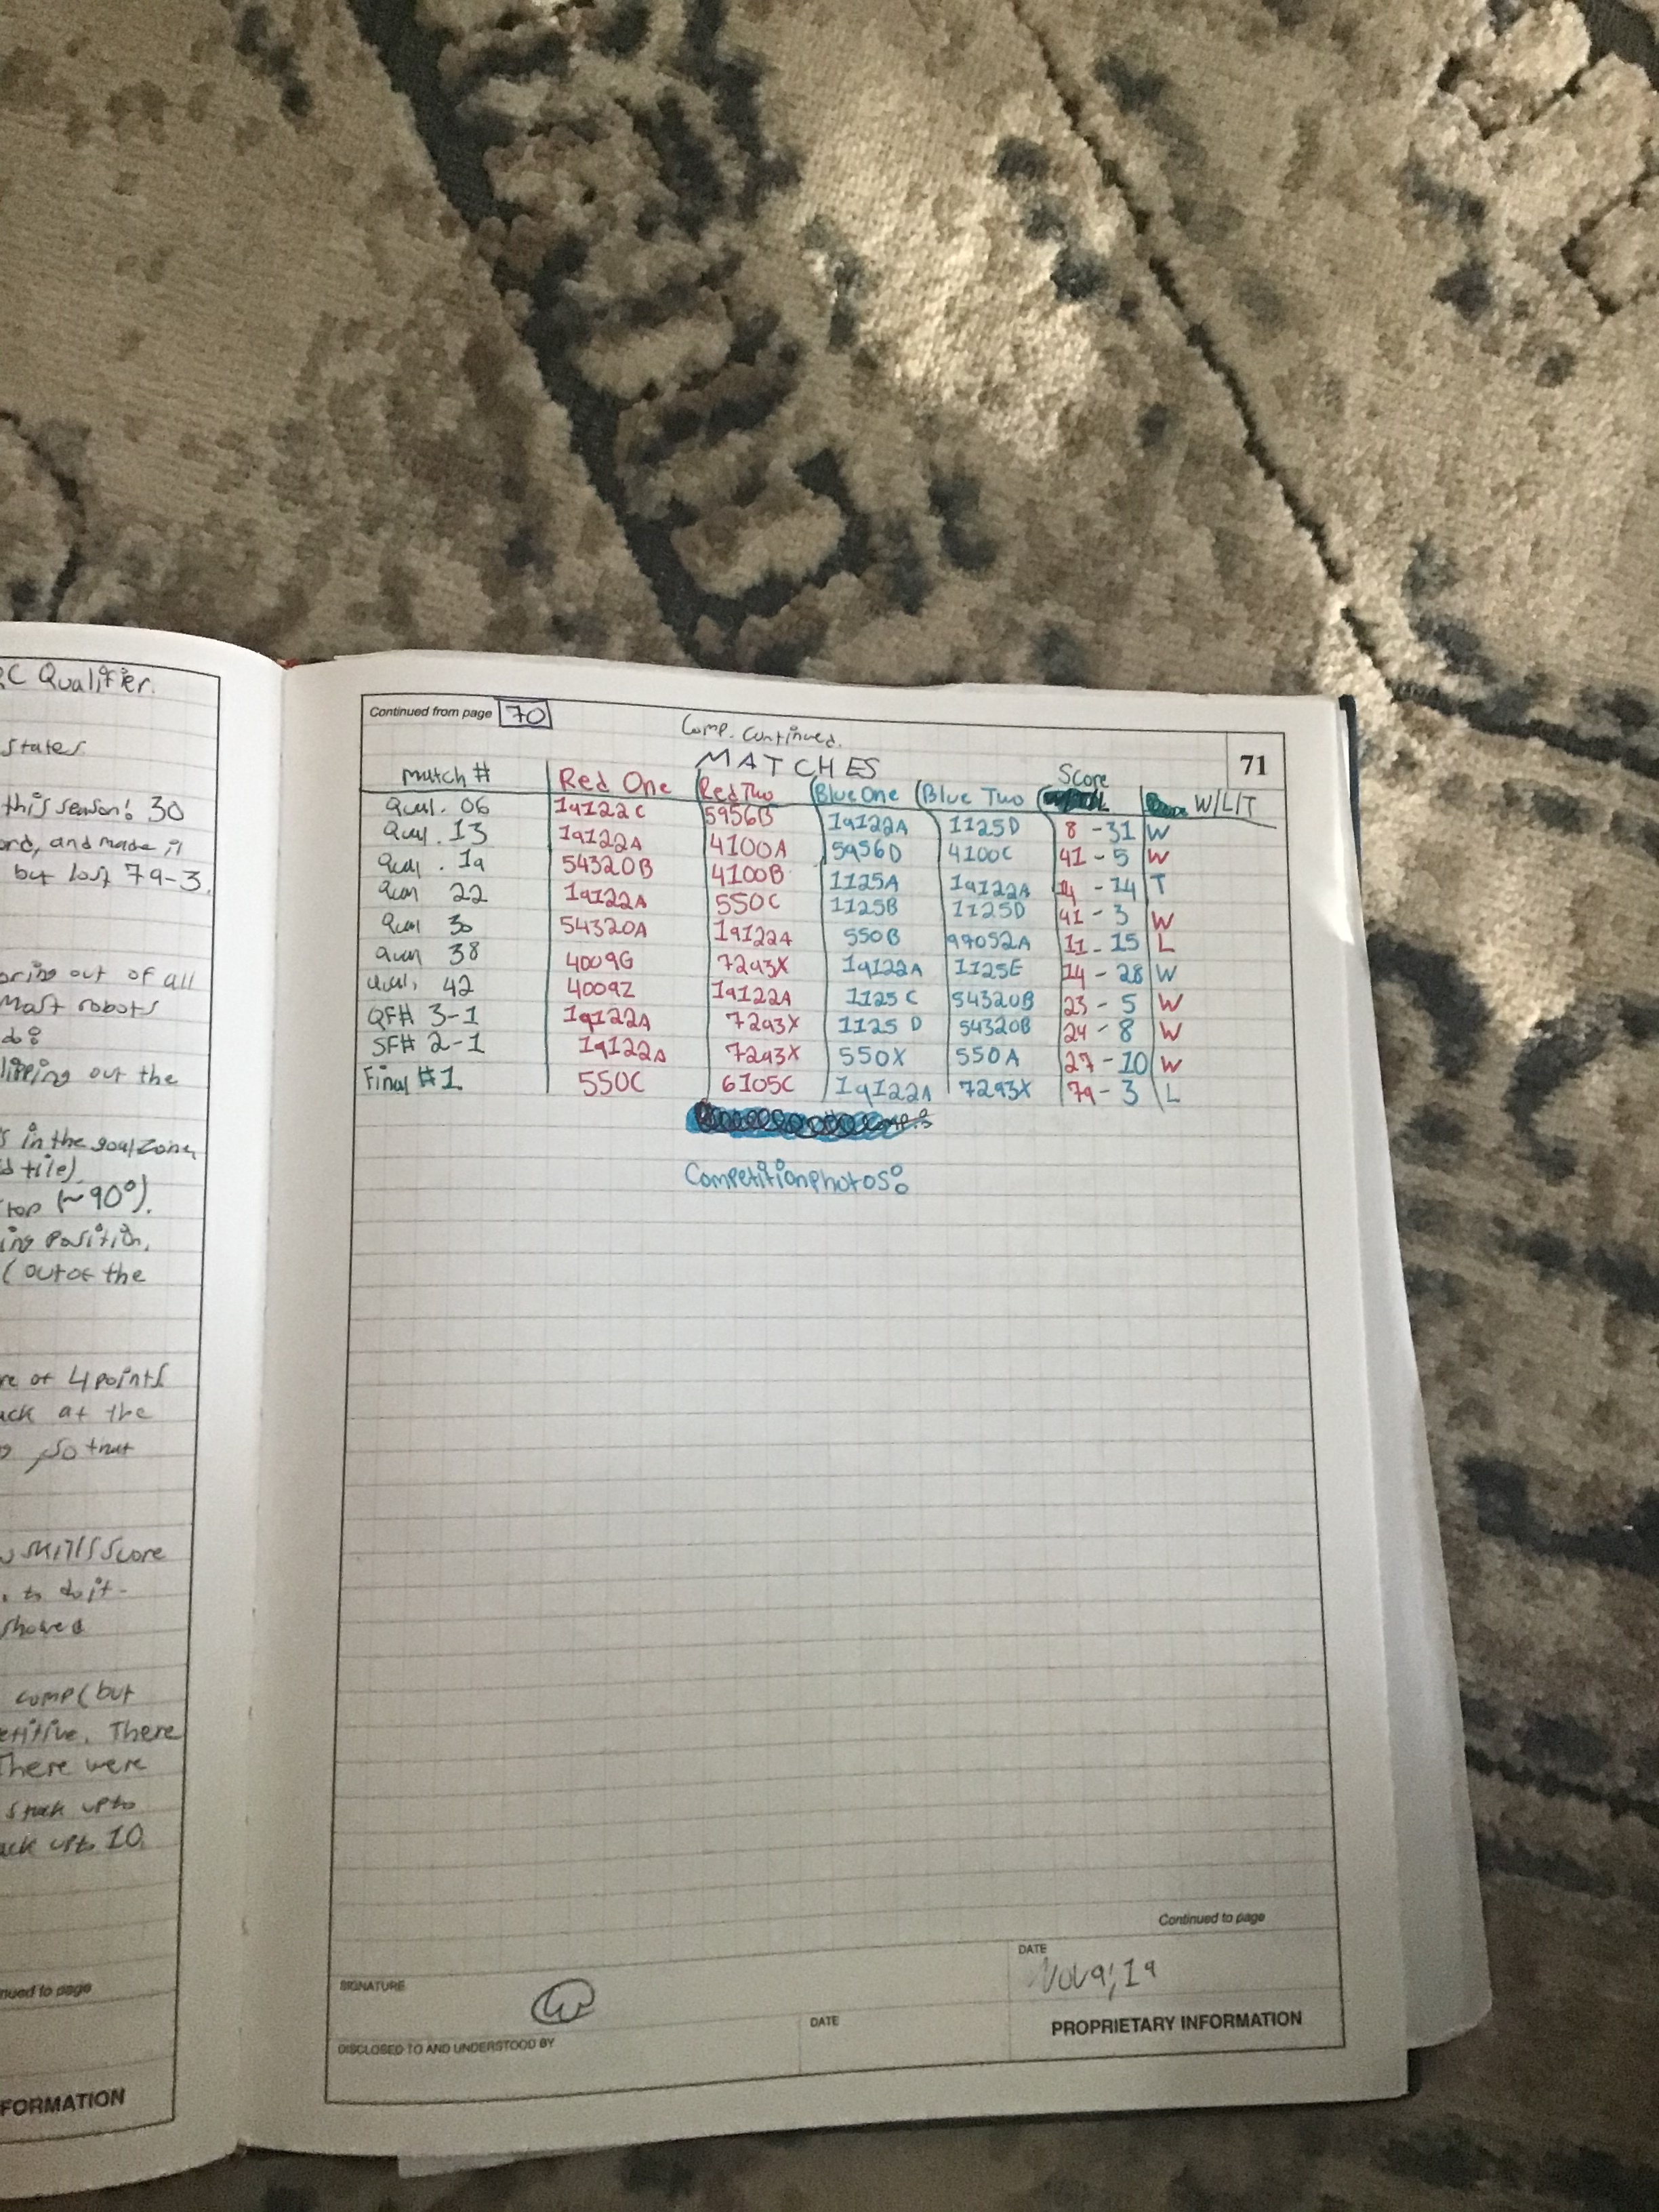 C Qualifier.
States
this season! 30
ord, and made it
but lost 79-3.
oring out of all
Most robots
do:
lipping out the
s in the goal zone,
d tile)
top (~90°).
ing position,
(out of the
re of 4 points
ack at the
so that
skills score
to do it-
showed
comp (but
etitive. There
There were
stack up to
ack up to 10.
nued to page
FORMATION
Continued from page 70
Comp. Continued.
71
MATCHES
Match # Red One Red Two Blue One Blue Two Score W/L/T
Qual. 06 19122C 5956B 19122A 1125D 8 - 31 W
Qual. 13 19122A 4100A 5956D 4100C 41 - 5 W
Qual. 19 54320B 4100B 1125A 19122A 14 - 14 T
Qual 22 19122A 550C 1125B 1125D 41 - 3 W
Qual 30 54320A 19122A 550B 99052A 11 - 15 L
Qual 38 4009G 7293X 19122A 1125E 14 - 28 W
Qual. 42 4009Z 19122A 1125C 54320B 23 - 5 W
QF# 3-1 19122A 7293X 1125D 54320B 24 - 8 W
SF# 2-1 19122A 7293X 550X 550A 27 - 10 W
Final #1 550C 6105C 19122A 7293X 79 - 3 L
Competition Photos:
Continued to page
SIGNATURE
DATE
Nov 9, 19
DISCLOSED TO AND UNDERSTOOD BY
DATE
PROPRIETARY INFORMATION